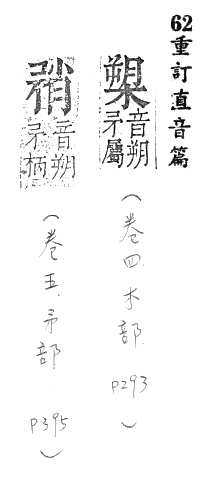 62重訂直音篇
槊音朔矛屬
（卷四 木部 P293）
矟音朔矛柄
（卷五.矛部 P395）